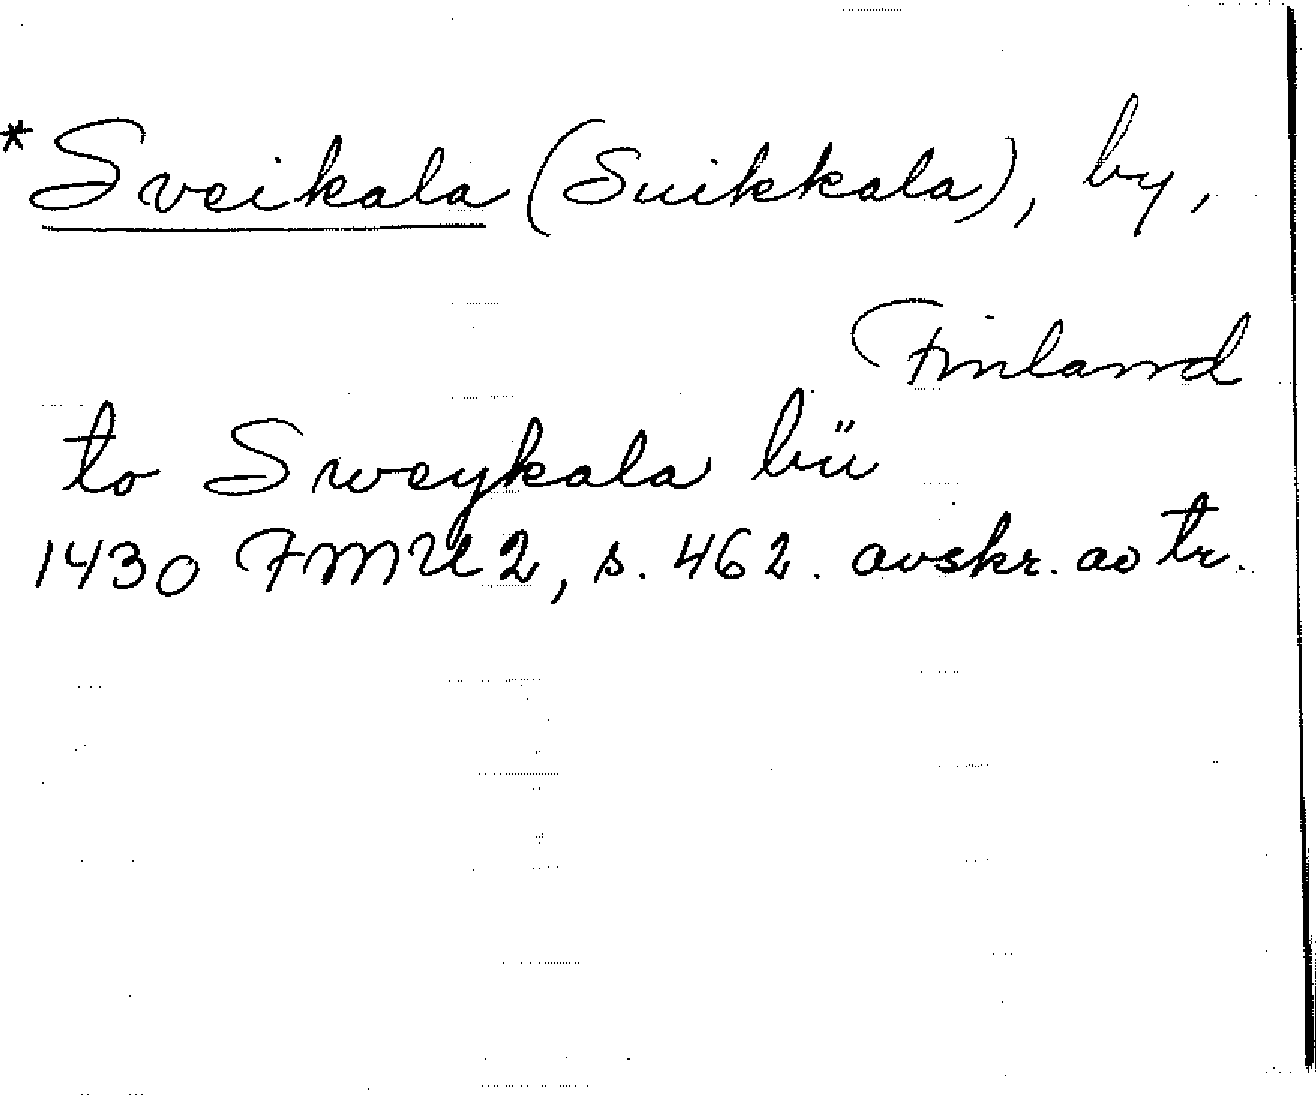 *Sveikala (Suikkala), by,
Finland
to Sweykala bÿ
1430 FMU 2, s. 462. avskr. av tr.